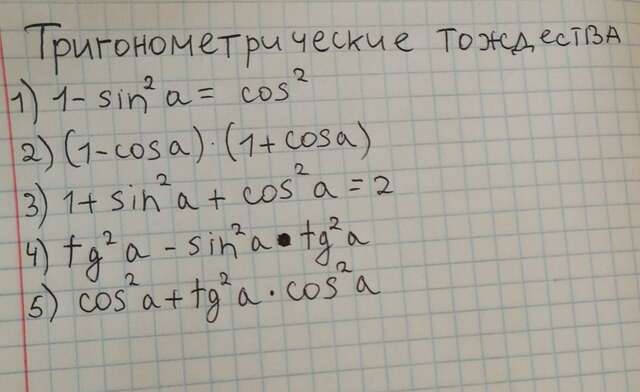 Тригонометрические тождества
1) 1 - sin²a = cos²
2) (1-cosa)·(1+cosa)
3) 1+ sin²a + cos²a = 2
4) tg²a - sin²a • tg²a
5) cos²a + tg²a · cos²a